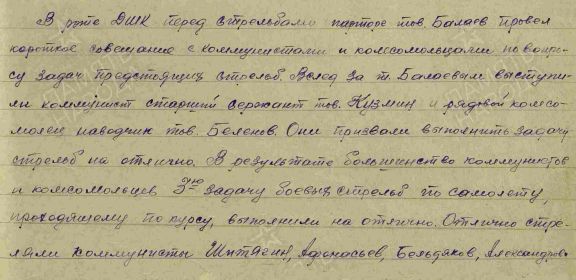 В роте ДШК перед стрельбами парторг тов. Балаев провел
короткое совещание с коммунистами и комсомольцами по вопро-
су задач предстоящих стрельб. Вслед за т. Балаевым выступи-
ли коммунист старший сержант тов. Кузмин и рядовой комсо-
молец наводчик тов. Беленов. Они призвали выполнить задачу
стрельб на отлично. В результате большинство коммунистов
и комсомольцев 3ю задачу боевых стрельб по самолету,
проходящему по курсу, выполнили на отлично. Отлично стре-
ляли коммунисты Афонасьев, Бельдяков, Александров